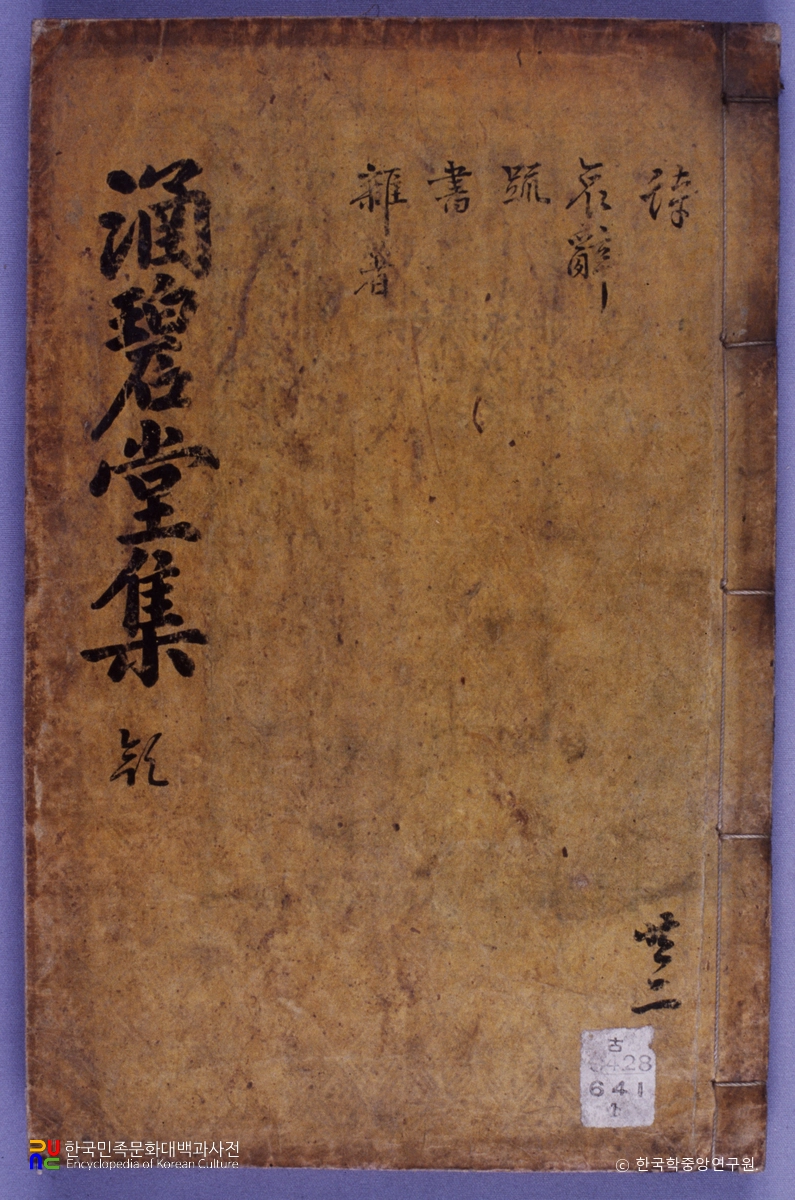 詩
哀辭
疏
書
雜著
涵碧堂集
共二
古
641
한국민족문화대백과사전
Encyclopedia of Korean Culture
© 한국학중앙연구원